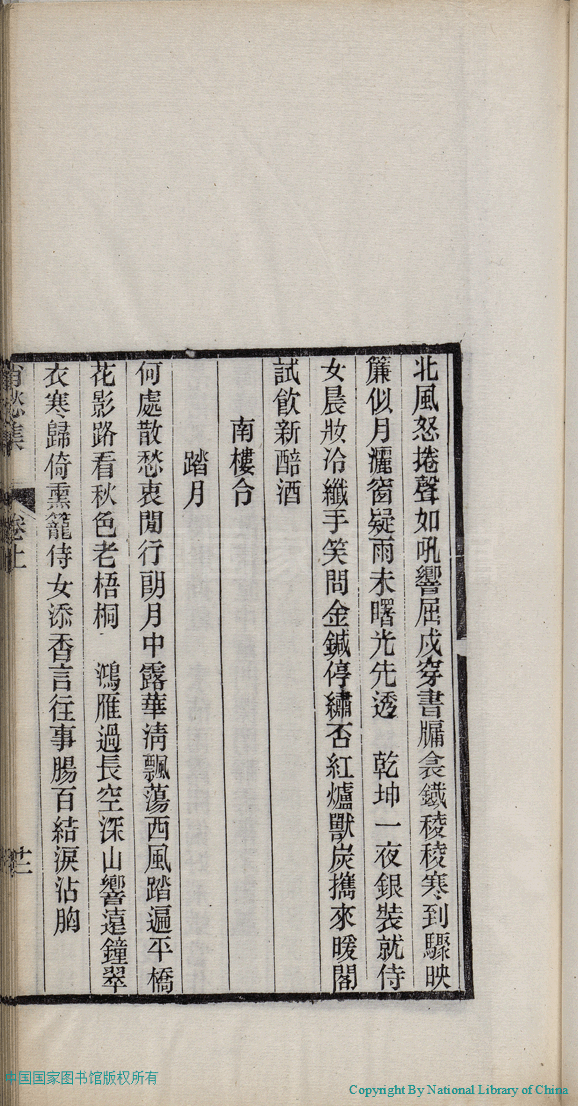 北風怒捲聲如吼響屈戍穿書牖衾鐵稜稜寒到驟映
簾似月灑窗疑雨未曙光先透　乾坤一夜銀裝就侍
女晨妝冷纖手笑問金鍼停繡否紅爐獸炭攜來暖閣
試飲新醅酒
南樓令
踏月
何處散愁衷閒行朗月中露華淸飄蕩西風踏遍平橋
花影路看秋色老梧桐　鴻雁過長空深山響遠鐘翠
衣寒歸倚熏籠侍女添香言往事腸百結淚沾胸
消愁集　卷上　十二
中国国家图书馆版权所有
Copyright By National Library of China